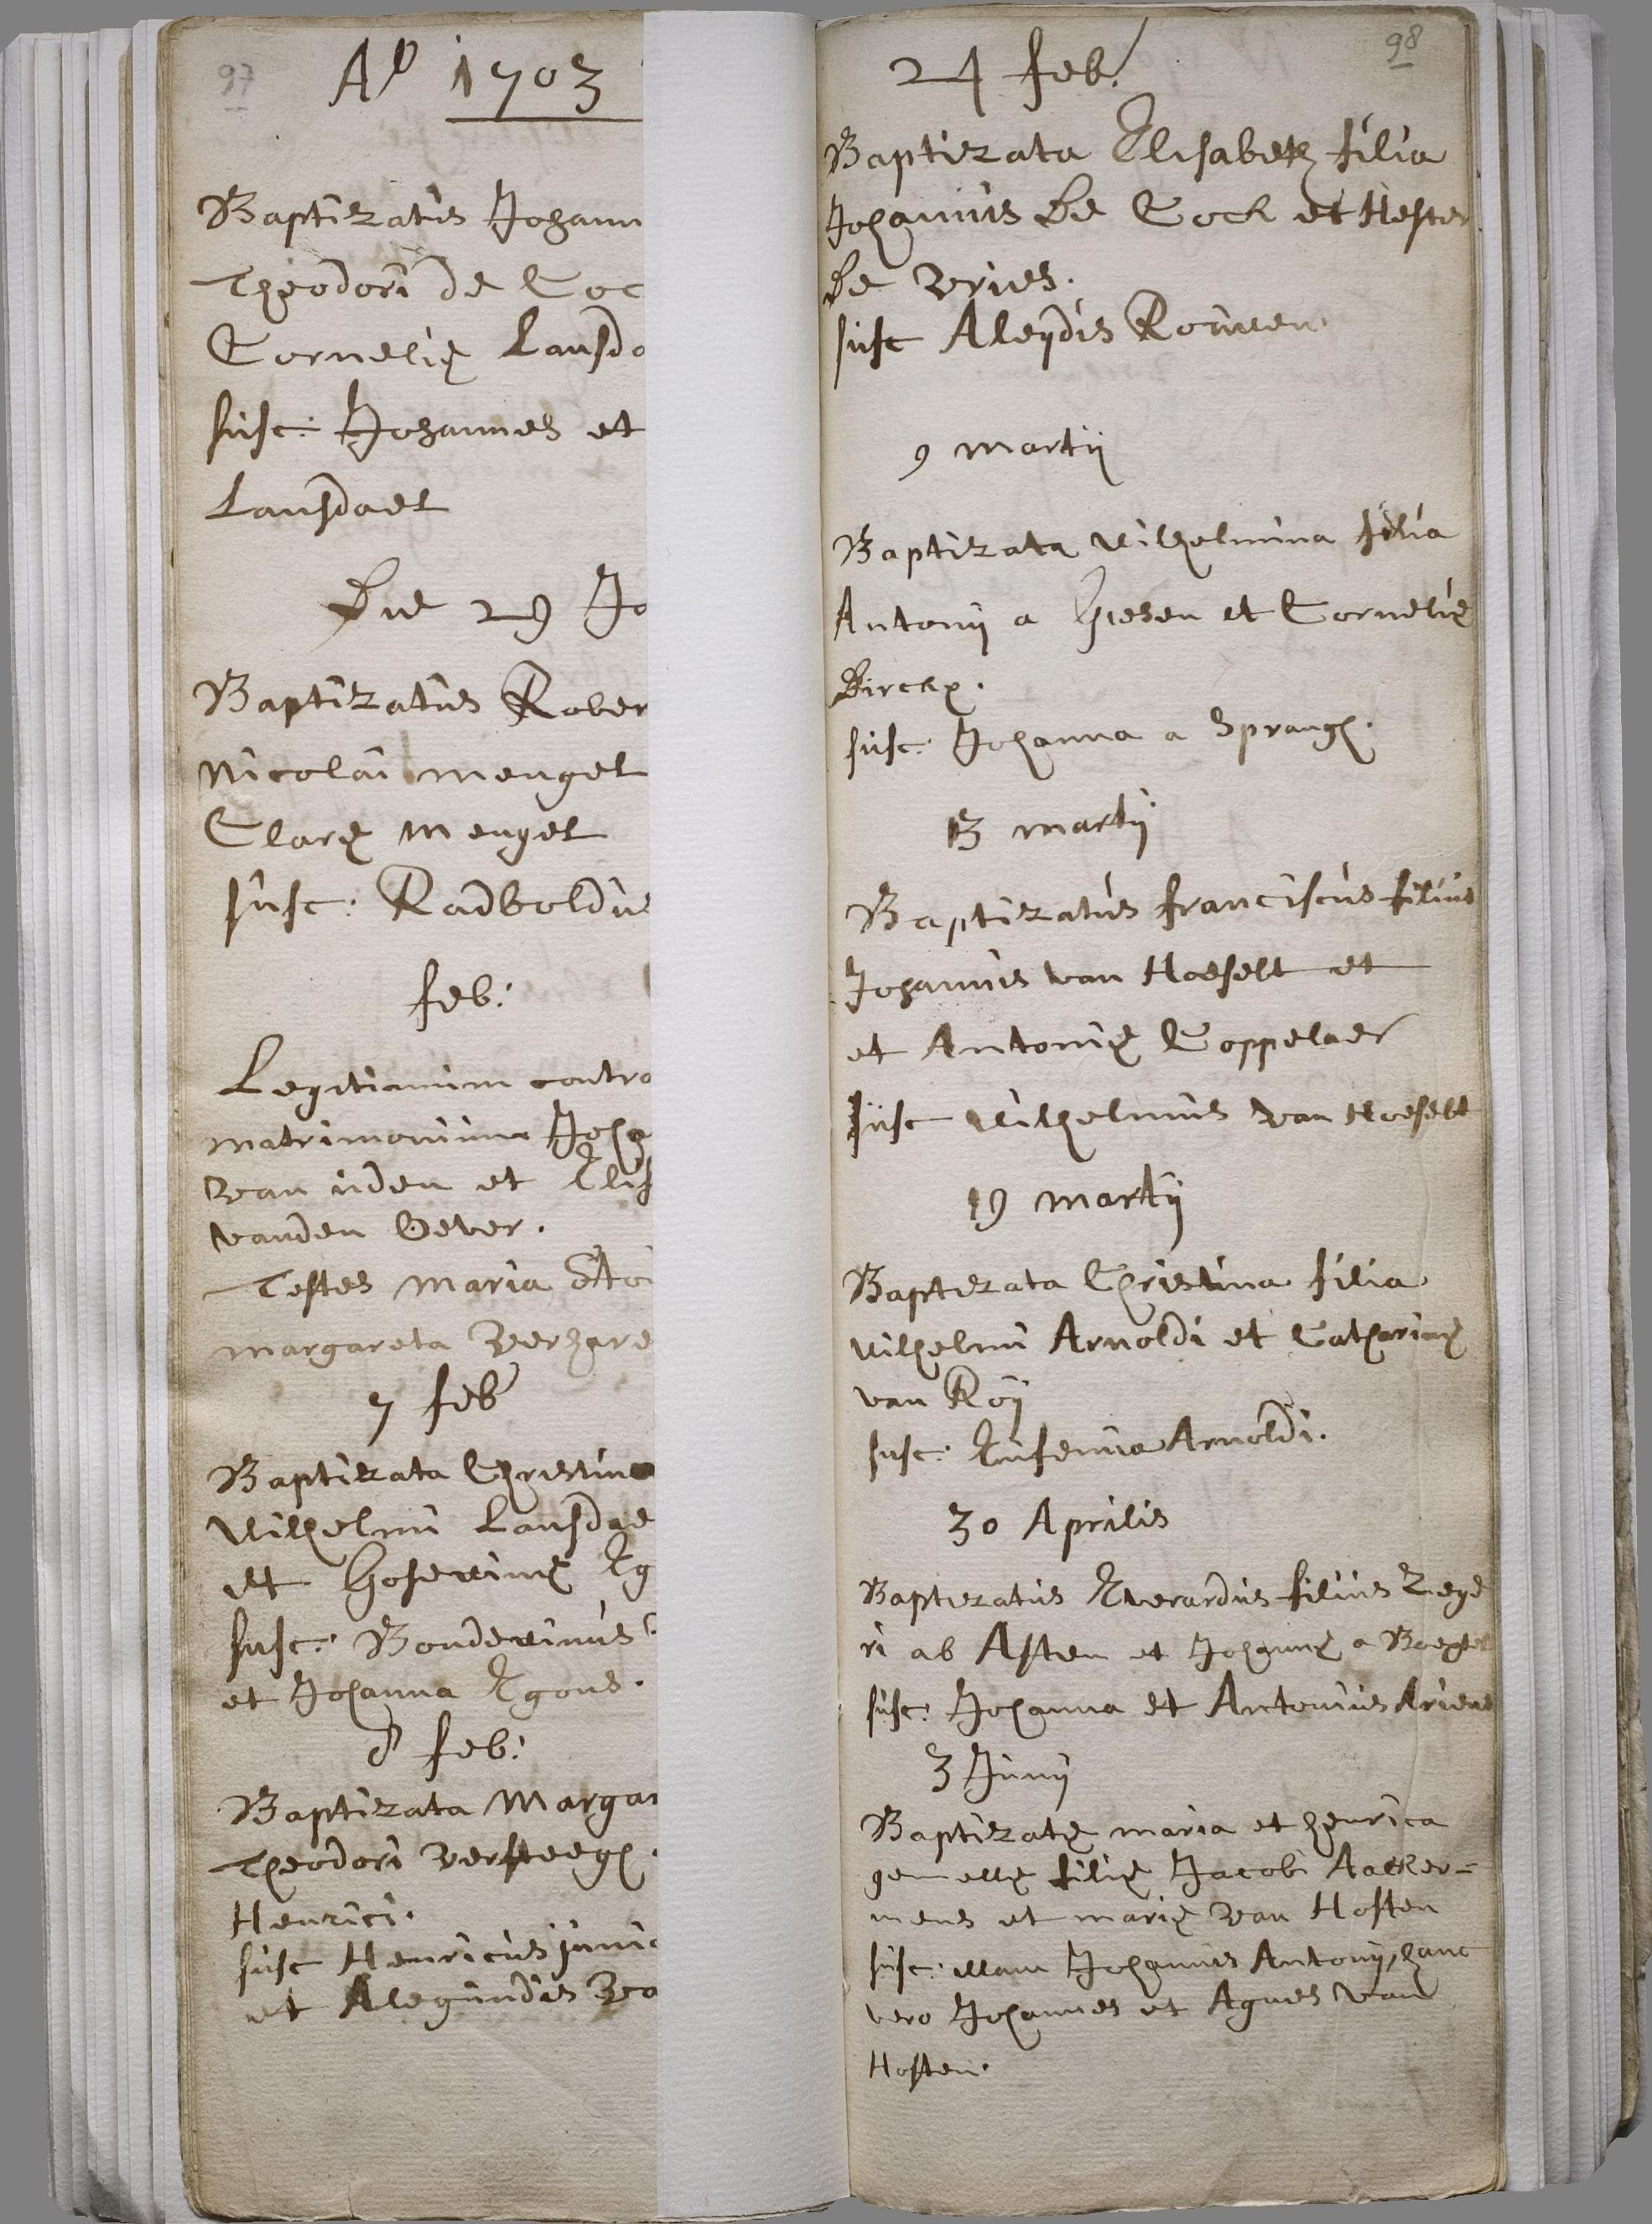 97
Ao 1703
Baptizatus Johann
Theodori de Coc
Cornelię Lansda
susc: Johannes et
Lansdael
Die 29 Ja
Baptizatus Rober
Nicolai mengel
Clarę mengel
susc: Radboldus
feb:
Legitimum contra
matrimonium Joha
van uden et Elis
vanden Oever.
Testes maria
margareta
7 feb
Baptizata Christina
wilhelmi Lansdae
et Goseuinę Eg
susc: Bouderinus
et Johanna Egons.
8 feb:
Baptizata Margar
Theodori versteegh.
Henrici.
susc Henricus junio
et Alegundis
98
24 feb.
Baptizata Elisabeth filia
Johannis de Cock et Hester
de vries.
susc Aleydis Rouwen
9 martij
Baptizata wilhelmina filia
Antonij a Giesen et Cornelię
Dirckx.
susc: Johanna a Sprangh.
13 martij
Baptizatus franciscus filius
Johannis van Haeselt et
et Antonię Coppelaer
susc wilhelmus van Hoeselt
19 martij
Baptizata Christina filia
wilhelmi Arnoldi et Catharinę
van Roij
susc: Eufemia Arnoldi.
30 Aprilis
Baptizatus Everardus filius Rege
ri ab Asten et Johannę a
susc: Johanna et Antonius Ariens
3 Junij
Baptizatę maria et henrica
gemellę filię Jacobi Aacker=
mens et marię van Hosten
susc: illam Johannis Antonij, hanc
vero Johannes et Agnes van
Hosten.